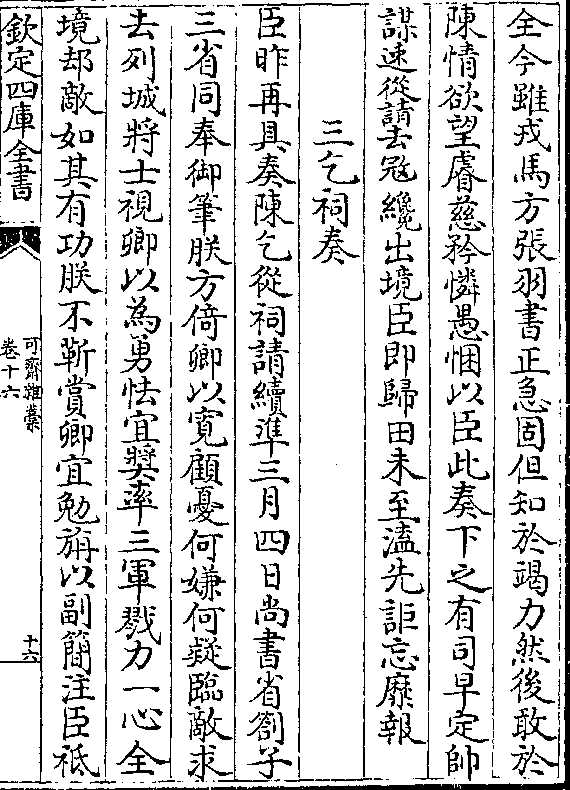 全今雖戎馬方張羽書正急固但知於竭力然後敢於
陳情欲望睿慈矜憐愚悃以臣此奏下之有司早定帥
謀速從請去冦纔出境臣即歸田未至溘先詎忘糜報
三乞祠奏
臣昨再具奏陳乞從祠請續準三月四日尚書省劄子
三省同奉御筆朕方倚卿以寛顧憂何嫌何疑臨敵求
去列城將士視卿以為勇怯宜奬率三軍戮力一心全
境却敵如其有功朕不靳賞卿宜勉旃以副簡注臣祗
欽定四庫全書
可齋雜藁
卷十六
十六